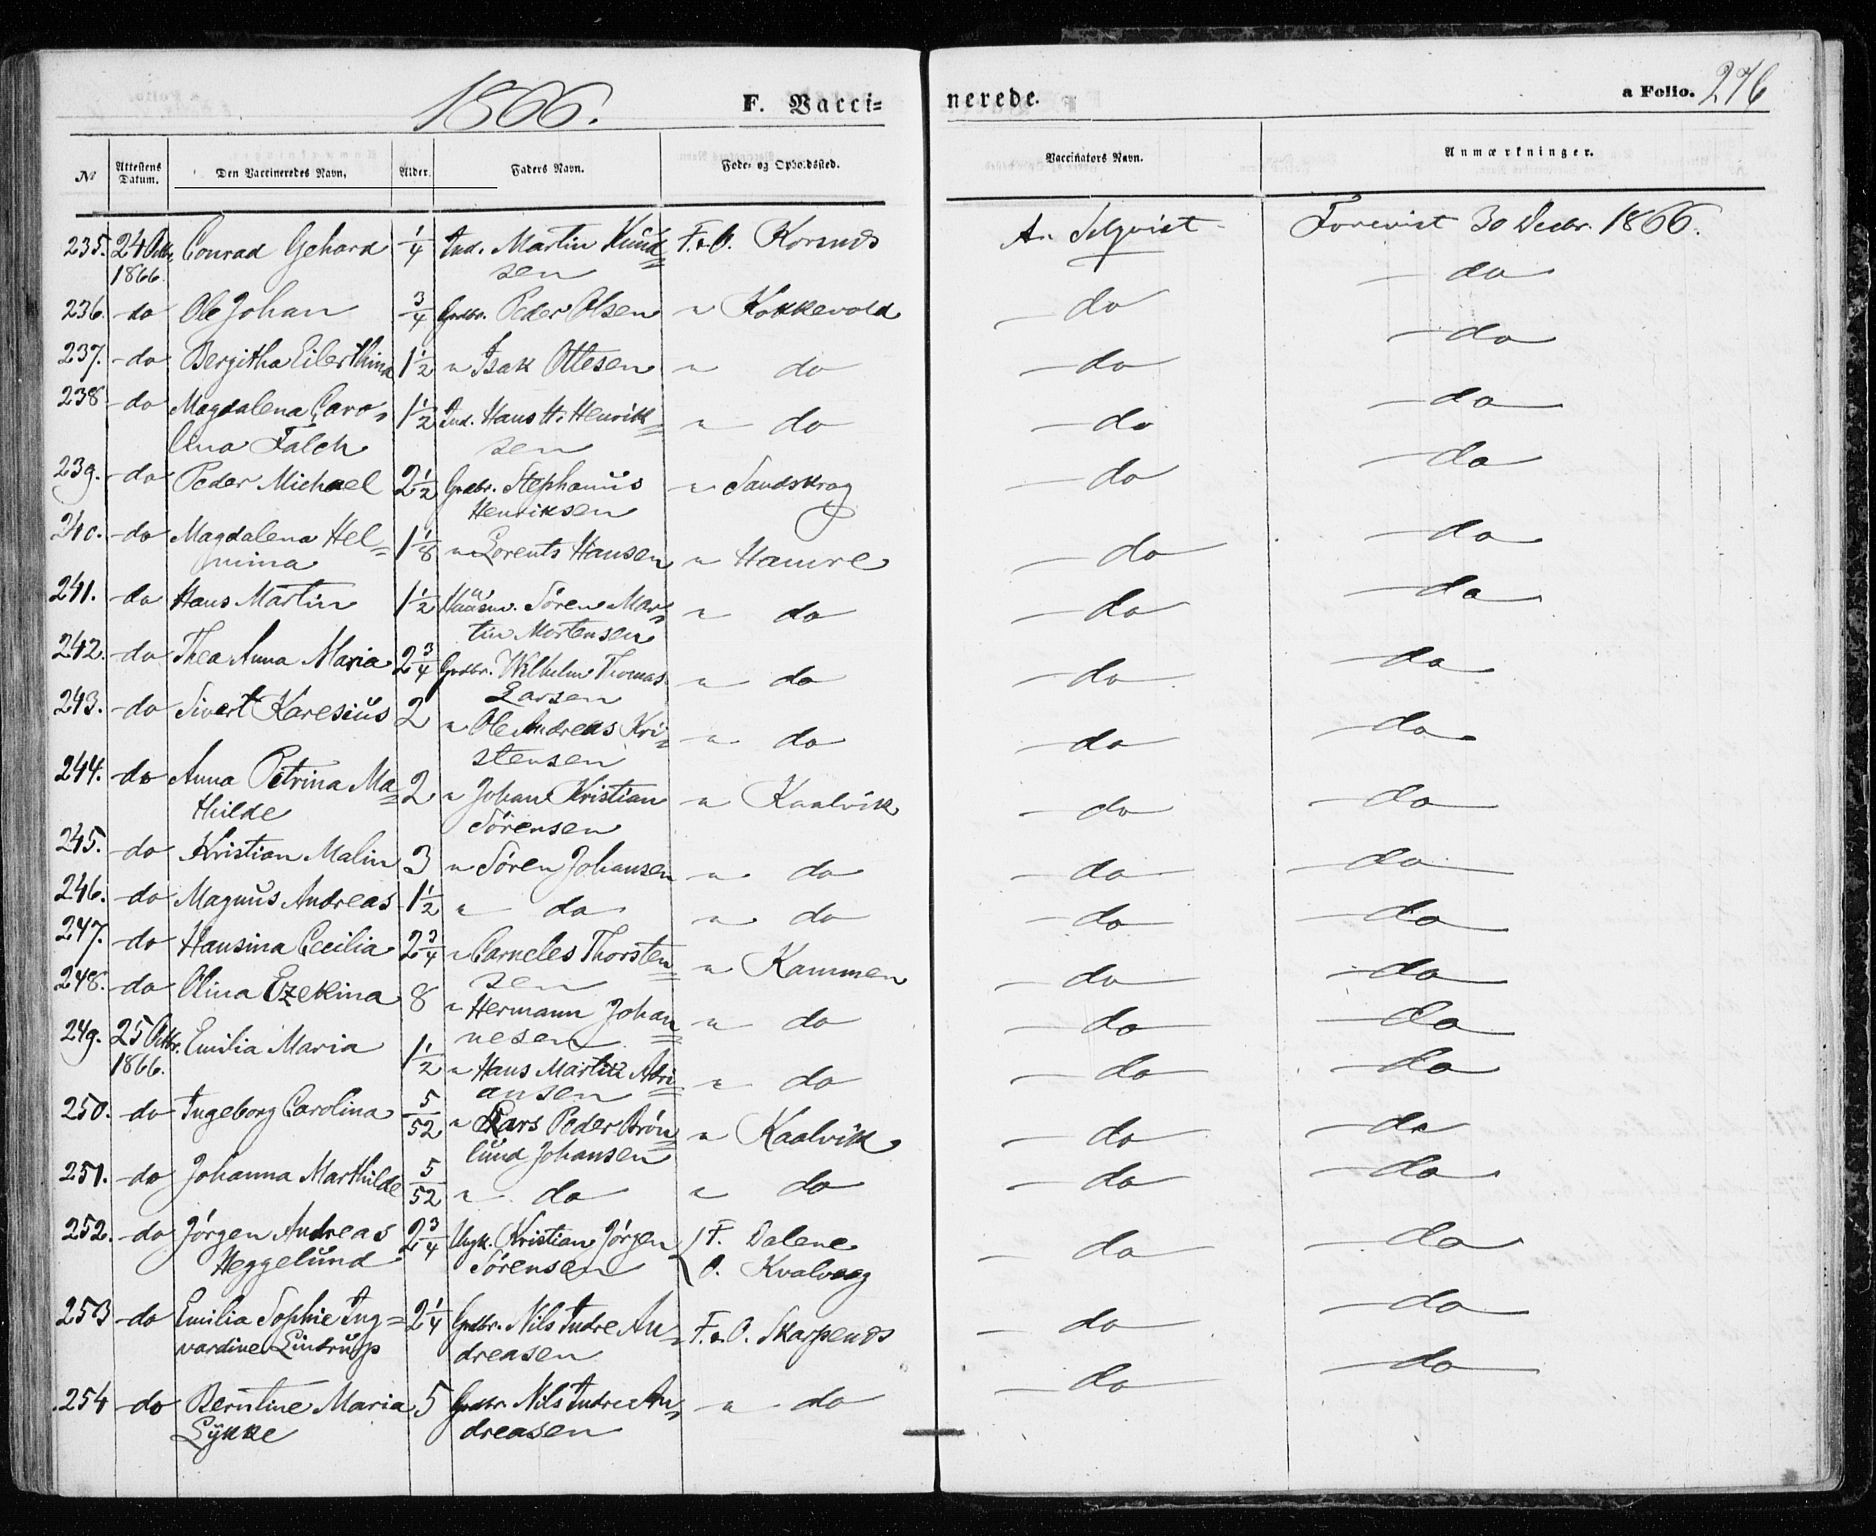 1866.
F. Vacci=
nerede.
a Folio. 276
No
Attestens Datum.
Den Vaccineredes Navn.
Alder.
Faders Navn.
Føde- og Opholdssted.
Vaccinators Navn.
Anmærkninger.
235. 24 Octbr. Conrad Gehard 1/4 Ind. Martin Knud= F. o O. Korsnes A. Selqvist Forevist 30 Decbr. 1866.
1866. sen - do
236. - do Ole Johan 3/4 Grdbr. Peder Olsen " Kokkevold - do
237. - do Bergitha Eilerthina 1 1/2 " Isak Ottesen " do - do - do
238 - do Magdalena Caro= 1 1/2 Ind. Hans H. Henrik= " do - do - do
lina Falch sen
239. - do Peder Michael 2 1/2 Grdbr. Stephanus " Sandskrog - do - do
Henriksen
240. - do Magdalena Hel= 1 1/8 " Lorents Hansen " Hamre - do - do
mina
241. - do Hans Martin 1 1/2 Huusm. Sören Mar= " do - do - do
tin Mortensen
242. - do Thea Anna Maria 2 3/4 Grdbr. Wilhelm Thomas " do - do - do
Larsen
243. - do Sivert Karesius 2 " Ole Andreas Kri= " do - do - do
stensen
244. - do Anna Petrina Ma= 2 " Johan Kristian " Kaalvik - do - do
thilde Sörensen
245. - do Kristian Malin 3 " Sören Johansen " do - do - do
246. - do Magnus Andreas 1 1/2 " do " do - do - do
247. - do Hansina Cecilia 2 3/4 " Carneles Thorsten= " Kammen - do - do
sen
248. - do Olina Ezekina 8 " Hermann Johan= " do - do - do
nesen
249. 25 Octbr. Emilia Maria 1 1/2 " Hans Martin Adri= " do - do - do
1866. ansen
250. - do Ingeborg Carolina 5/52 " Lars Peder Brön= " Kaalvik - do - do
lund Johansen
251. - do Johanna Marthilde 5/52 " do " do - do - do
252. - do Jörgen Andreas 2 3/4 Ungk. Kristian Jörgen F. Dalene - do - do
Heggelund Sörensen O. Kvalvaag
253 - do Emilia Sophie Ing= 2 1/4 Grdbr. Nils Indre An= F. o O. Skarpenes - do - do
vardine Lintrup dreasen
254 - do Berntine Maria 5 Grdbr. Nils Indre An= " do - do - do
Lykke dreasen